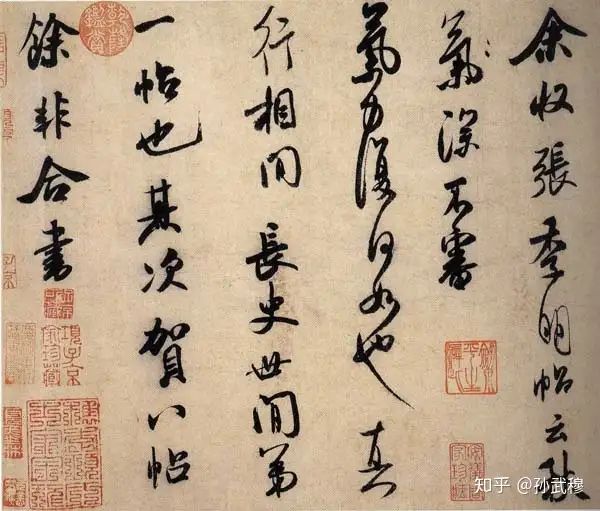 余收張季明帖云秋
氣深不審
氣力復何如也真
行相間長史世間第
一帖也其次賀八帖
餘非合書
項子京家珍藏
知乎 @孙武穆